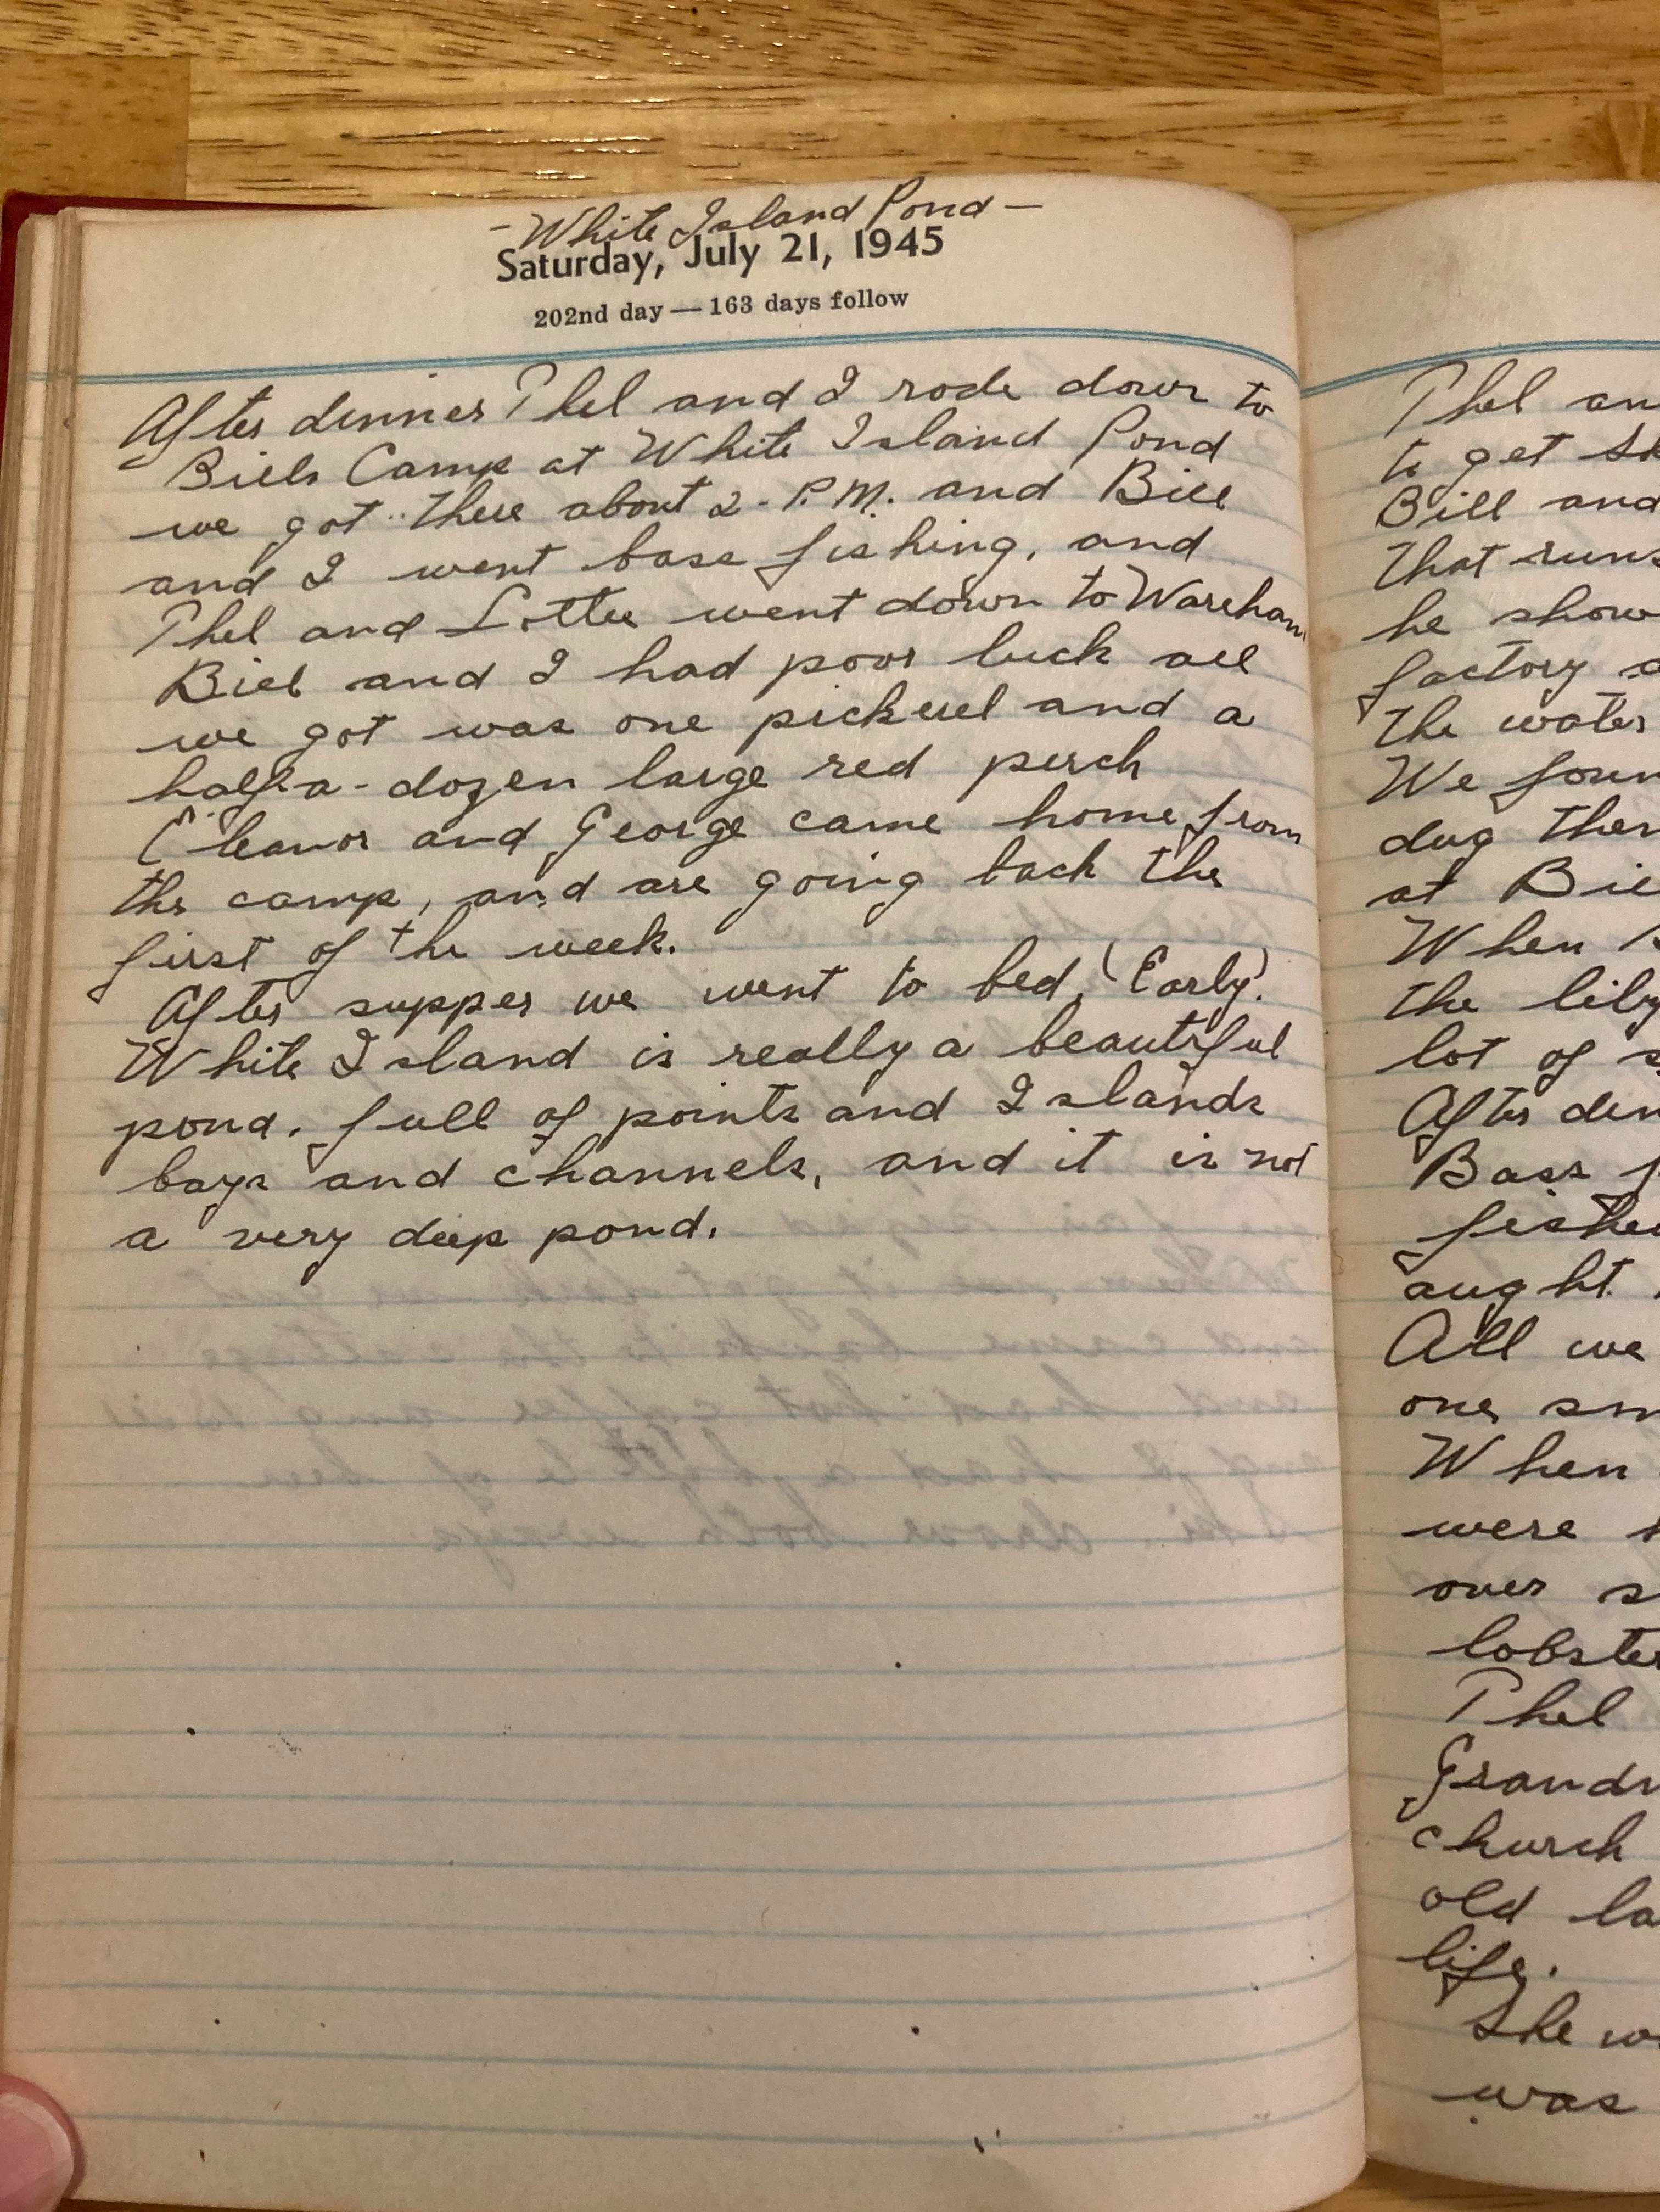 - White Island Pond -
Saturday, July 21, 1945
202nd day — 163 days follow
After dinner Thel and I rode down to
Bills Camp at White Island Pond
we got there about 2 - P.M. and Bill
and I went bass fishing, and
Thel and Lottie went down to Wareham
Bill and I had poor luck all
we got was one pickerel and a
half-a-dozen large red perch
Eleanor and George came home from
the camp, and are going back the
first of the week.
After supper we went to bed, (Early).
White Island is really a beautiful
pond. full of points and Islands
bays and channels, and it is not
a very deep pond.
Thel an
to get
Bill and
that runs
he show
factory
the water
We foun
dug them
at Bil
When
the lily
lot of
After din
Bass f
fished
aught
All we
one sm
When
were
over s
lobster
Thel
Grandm
church
old la
life.
She wa
was